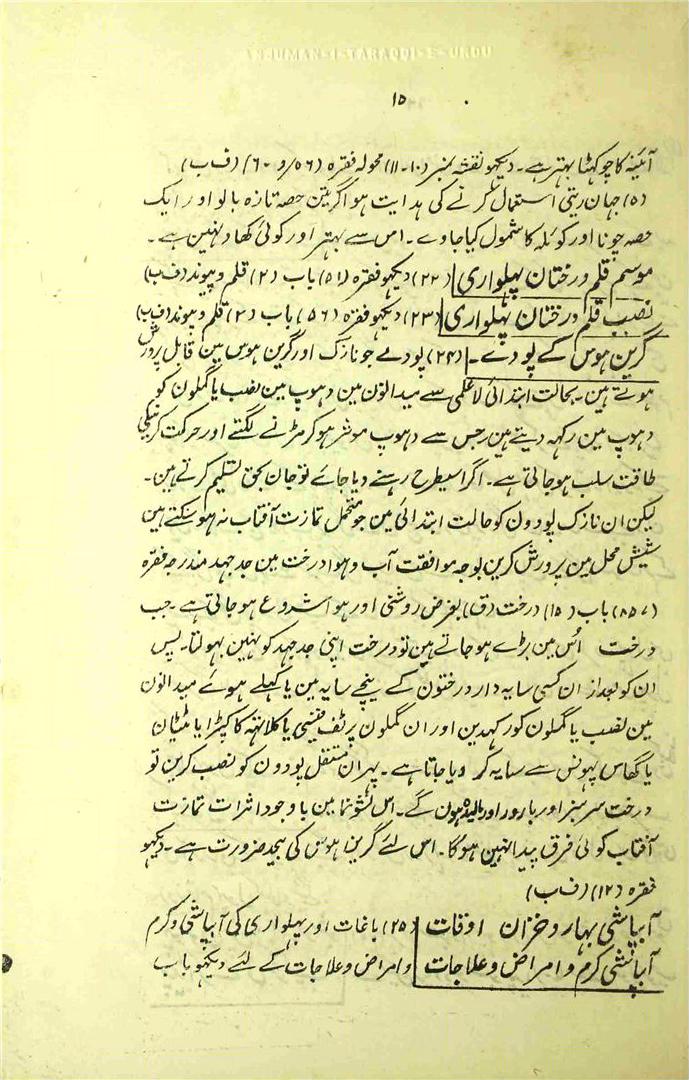 ANJUMAN-I-TARAQQI-E-URDU
۱۵
آئینہ کا چوکھٹا بہتر ہے۔ دیکھو نقشہ نمبر (۱۰۔۱۱) محولہ فقرہ (۵۶ و ۶۰) (ف ب)
(۵) جہان ریتی استعمال کرنے کی ہدایت ہو اگر تین حصہ تازہ بالو اور ایک
حصہ چونا اور کوئلہ کا شمول کیا جاوے۔ اس سے بہتر اور کوئی کھاد نہین ہے۔
موسم قلم درختان پہلواری (۲۲) دیکھو فقرہ (۵۱) باب (۲) قلم و پیوند (ف ب)
نصب قلم درختان پہلواری (۲۳) دیکھو فقرہ (۵۶) باب (۲) قلم و پیوند (ف ب)
گرین ہوس کے پودے۔ (۲۴) پودے جو نازک اور گرین ہوس مین قابل پرورش
ہوتے ہین۔ بحالت ابتدائی لاعلمی سے میدانون مین دہوپ مین نصب یا گملون کو
دہوپ مین رکہہ دیتے ہین جس سے دہوپ موثر ہو کر مڑنے لگتے اور حرکت کرنیکی
طاقت سلب ہو جاتی ہے۔ اگر اسیطرح رہنے دیا جائے تو جان بحق تسلیم کرتے ہین۔
لیکن ان نازک پودون کو حالت ابتدائی مین جو متحمل تمازت آفتاب نہ ہو سکتے ہین
شیش محل مین پرورش کرین بوجہ موافقت آب وہوا درخت مین جد جہد مندرجہ فقرہ
(۸۵۷) باب (۱۵) درخت (ق) بغرض روشنی اور ہوا شروع ہو جاتی ہے۔ جب
درخت اُس مین بڑے ہو جاتے ہین تو درخت اپنی جد جہد کو نہین بہولتا۔ پس
ان کو بعد از ان کسی سایہ دار درختون کے نیچے سایہ مین یا کہلے ہوئے میدانون
مین نصب یا گملون کو رکہدین اور ان گملون پر ٹف قیتی یا کلاتہہ کا کپڑا یا ٹٹیان
یا گھاس پہونس سے سایہ کر دیا جاتا ہے۔ پہر ان مستقل پودون کو نصب کرین تو
درخت سرسبز اور بارور اور بالیدہ ہون گے۔ اس نشو نما مین باوجود اثرات تمازت
آفتاب کوئی فرق پیدا نہین ہوگا۔ اس لئے گرین ہوس کی بیحد ضرورت ہے۔ دیکہو
فقرہ (۱۲) (ف ب)
آبپاشی بہار و خزان اوقات (۲۵) باغات اور پہلواری کی آبپاشی و کرم
آبپاشی کرم و امراض و علاجات و امراض و علاجات کے لئے دیکہو باب